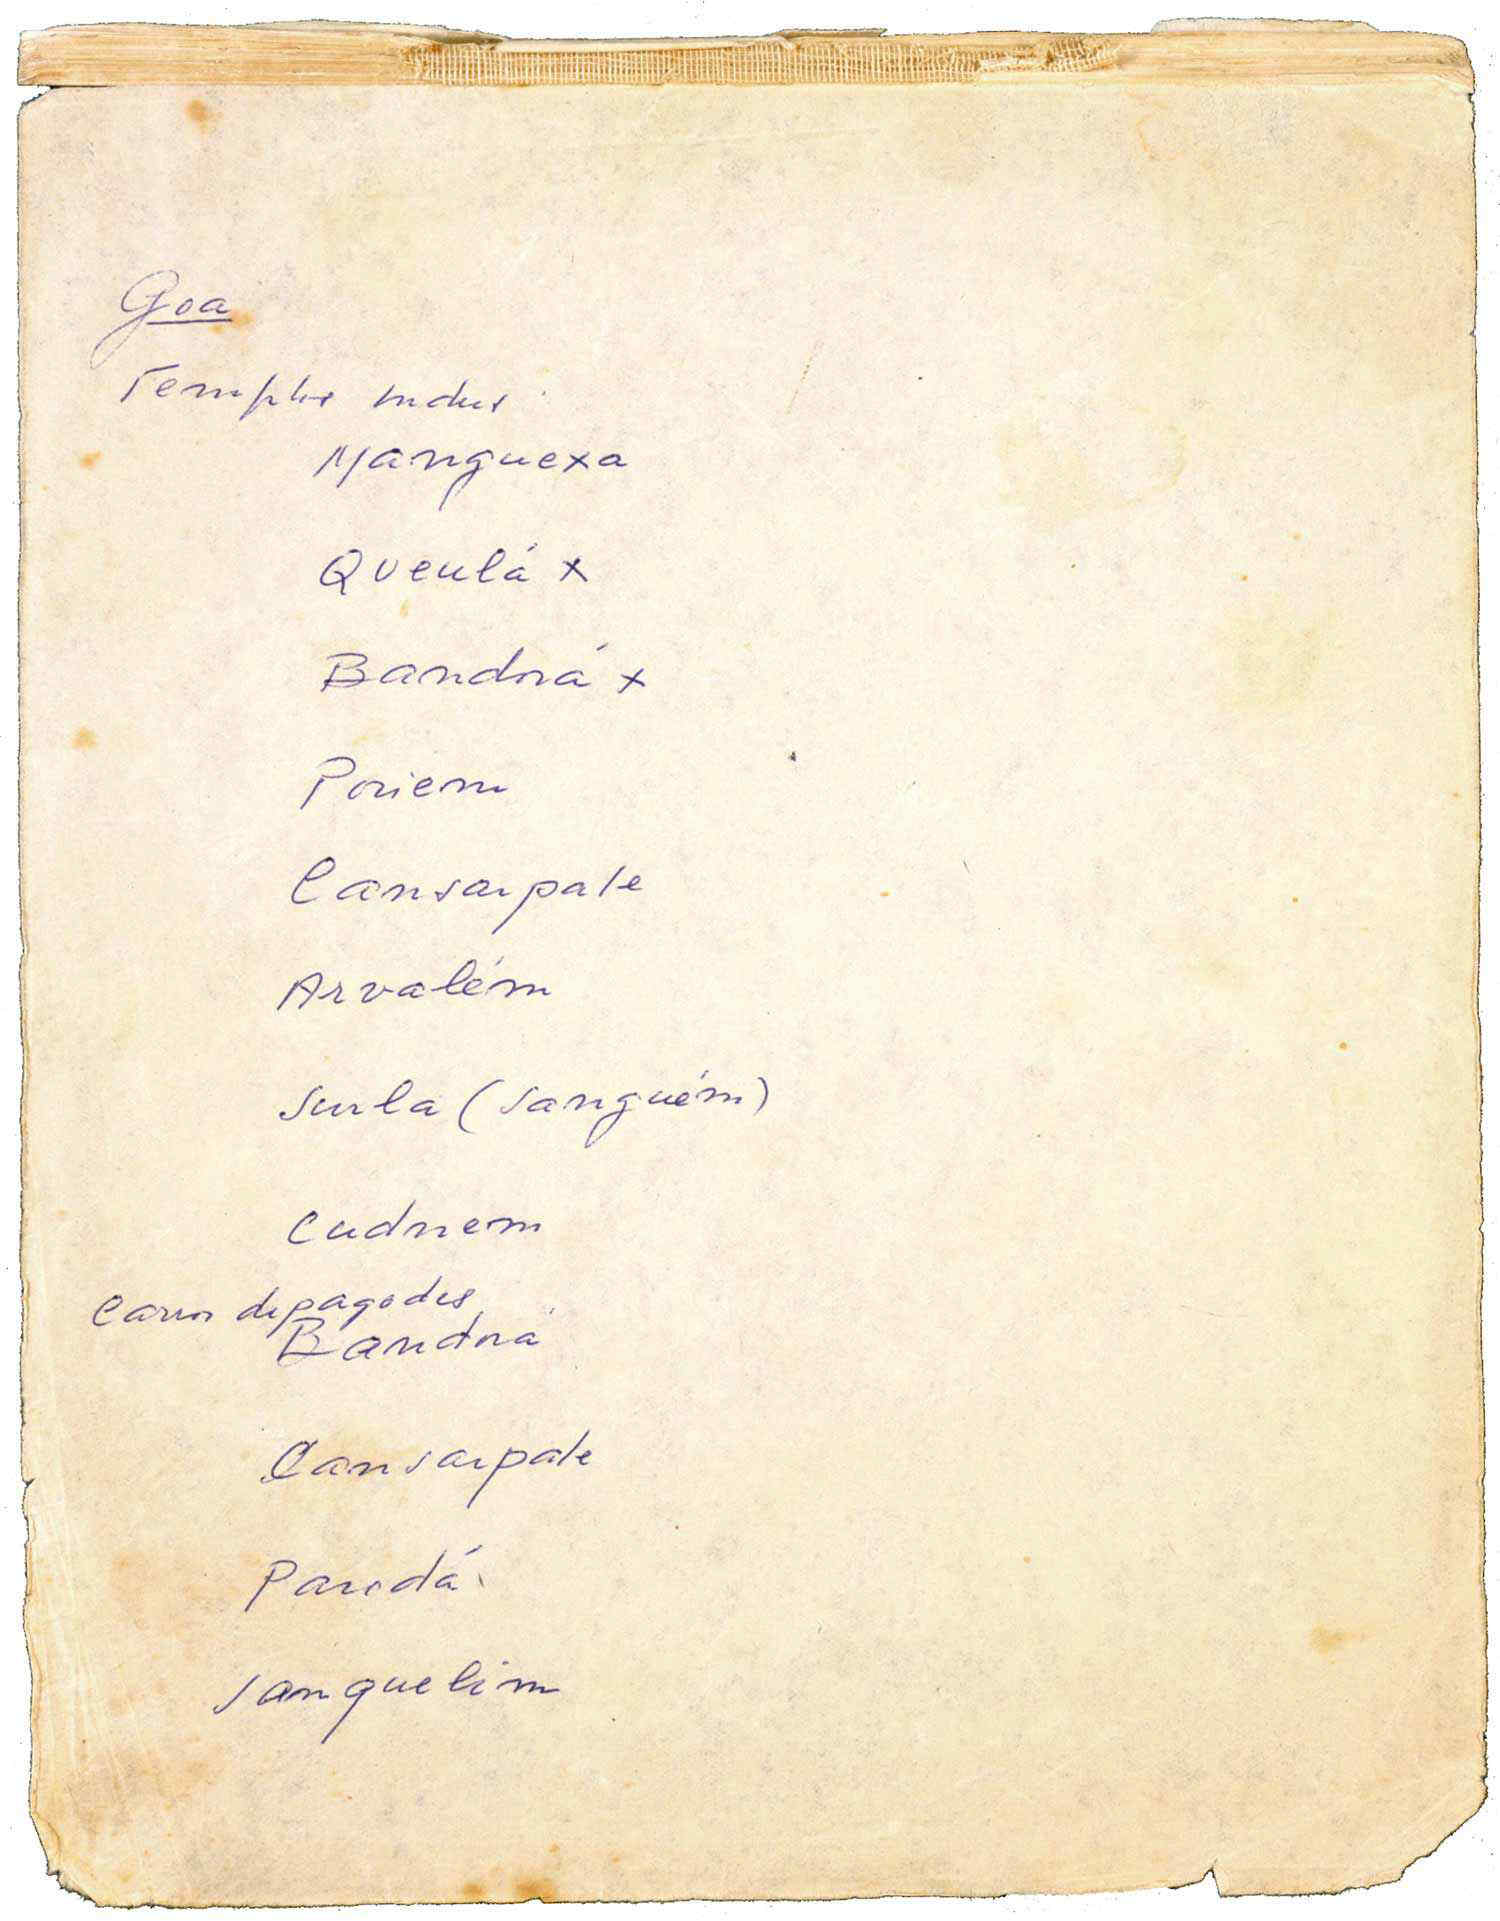 Goa
Templos indus
Manguexa
Queulá x
Bandorá x
Poriem
Cansarpale
Arvalém
Surla (Sanguém)
Cudnem
Carros de pagodes
Bandorá
Cansarpale
Parodá
Sanquelim